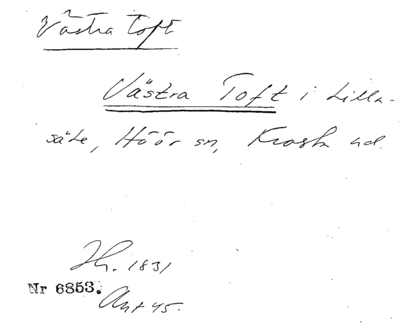 Västra Toft
Västra Toft i Lilla-
säte, Höör sn, Frosta hd.
Jh. 1831
Nr 6853.
Ant 45.